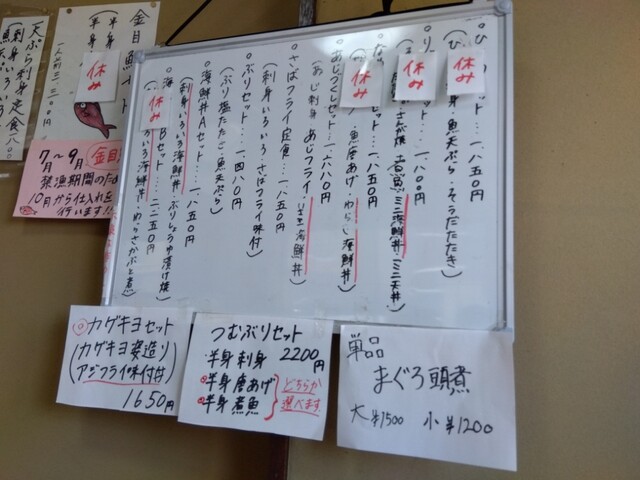 休み
セット・・・一、八五〇円
刺身・魚天ぷら・そうだたたき)
休み
セット・・・一、八〇〇円
さんが焼・煮魚・ミニ海鮮丼・ミニ天丼)
休み
セット・・・一、八五〇円
魚唐あげ・わらし海鮮丼)
あじづくしセット・・・一、六八〇円
(あじ刺身 あじフライ・ミニ海鮮丼)
さばフライ定食・・・一、八五〇円
(刺身いろいろ・さばフライ味付)
ぶりセット・・・一、四八〇円
(ぶり塩たたき・魚天ぷら)
海鮮丼Aセット・・・一、八五〇円
(刺身いろいろ海鮮丼・ぶりしょうゆ漬け焼)
海
休み
Bセット・・・二、二五〇円
いろいろ海鮮丼・わらさかぶと煮)
金目鯛
セット
半身
休み
天ぷら刺身定食
(刺身いろいろ
7月〜9月 金目
禁漁期間のため
10月から仕入れを
行います!!
カゲキヨセット
(カゲキヨ姿造り
アジフライ味付丼)
1650円
つむぶりセット
・半身刺身 2200円
半身唐あげ
半身煮魚
どちらか
選べます
単品
まぐろ頭煮
大 ¥1500 小 ¥1200